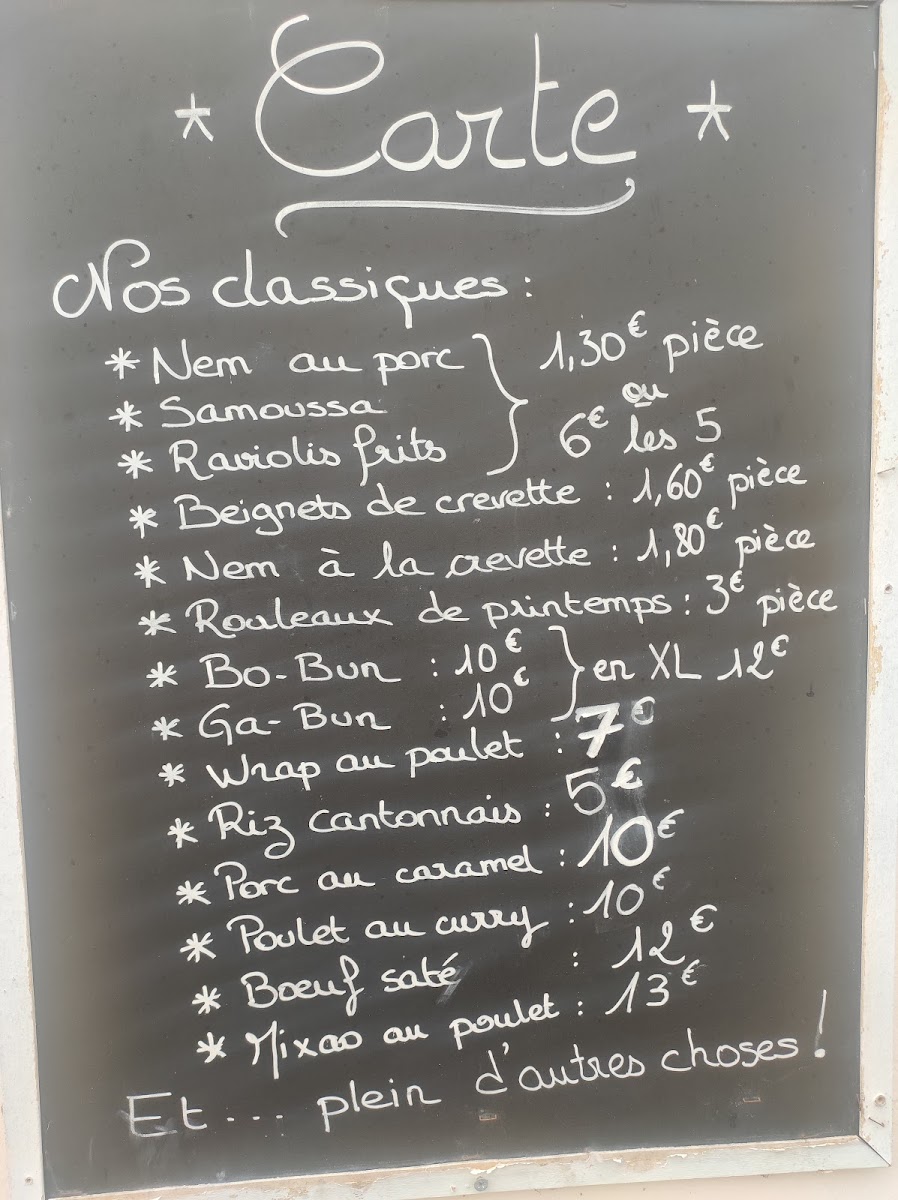 * Carte *
Nos classiques :
* Nem au porc } 1,30€ pièce
* Samoussa } ou
* Raviolis frits } 6€ les 5
* Beignets de crevette : 1,60€ pièce
* Nem à la crevette : 1,80€ pièce
* Rouleaux de printemps : 3€ pièce
* Bo-Bun : 10€ } en XL 12€
* Ga-Bun : 10€ }
* Wrap au poulet : 7€
* Riz cantonnais : 5€
* Porc au caramel : 10€
* Poulet au curry : 10€
* Bœuf saté : 12€
* Mixao au poulet : 13€
Et ... plein d'autres choses !